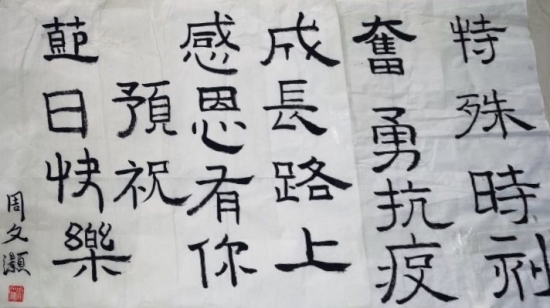 特殊時刻
奮勇抗疫
成長路上
感恩有你
預祝
節日快樂
周文灝